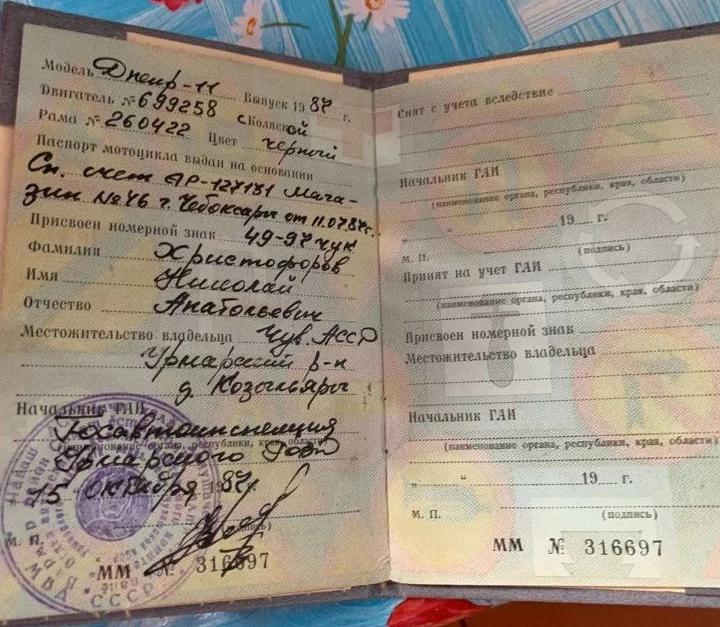 Модель Днепр-11
Двигатель № 699258 Выпуск 1987 г.
Рама № 260422 с Коляской Цвет черный
Паспорт мотоцикла выдан на основании
Сп. счет АР-127131 Мага-
зин №46 г. Чебоксары от 11.07.87г.
Присвоен номерной знак 49-97 чук
Фамилия Христофоров
Имя Николай
Отчество Анатольевич
Местожительство владельца Чув. АССР
Урмарский р-н
д. Козыльяры
Начальник ГАИ
Госавтоинспекция
(наименование органа, республики, края, области)
Урмарского РОВД
15 октября 1987г.
М. П.
СССР
ММ № 316697
Снят с учета вследствие
Начальник ГАИ
(наименование органа, республики, края, области)
„ “ 19 г.
М. П. (подпись)
Принят на учет ГАИ
(наименование органа, республики, края, области)
Присвоен номерной знак
Местожительство владельца
Начальник ГАИ
(наименование органа, республики, края, области)
„ “ 19 г.
М. П. (подпись)
ММ № 316697